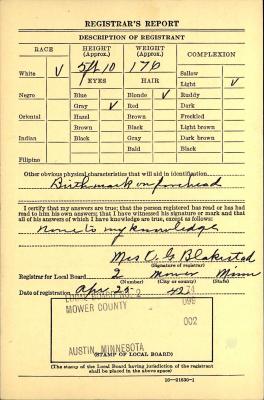 REGISTRAR'S REPORT
DESCRIPTION OF REGISTRANT
RACE HEIGHT (Approx.) WEIGHT (Approx.) COMPLEXION
White ✓ 5 ft 10 176 Sallow
EYES HAIR Light ✓
Negro Blue Blonde ✓ Ruddy
Gray ✓ Red Dark
Oriental Hazel Brown Freckled
Brown Black Light brown
Indian Black Gray Dark brown
Bald Black
Filipino
Other obvious physical characteristics that will aid in identification
Birthmark on forehead
I certify that my answers are true; that the person registered has read or has had read to him his own answers; that I have witnessed his signature or mark and that all of his answers of which I have knowledge are true, except as follows:
None to my knowledge
Mrs O. G Blakestad
(Signature of registrar)
Registrar for Local Board 2 Mower Minn
(Number) (City or county) (State)
Date of registration Apr. 25 42
LOCAL BOARD NO. 2 74
MOWER COUNTY 099
002
AUSTIN, MINNESOTA
(STAMP OF LOCAL BOARD)
(The stamp of the Local Board having jurisdiction of the registrant shall be placed in the above space)
16—21630-1